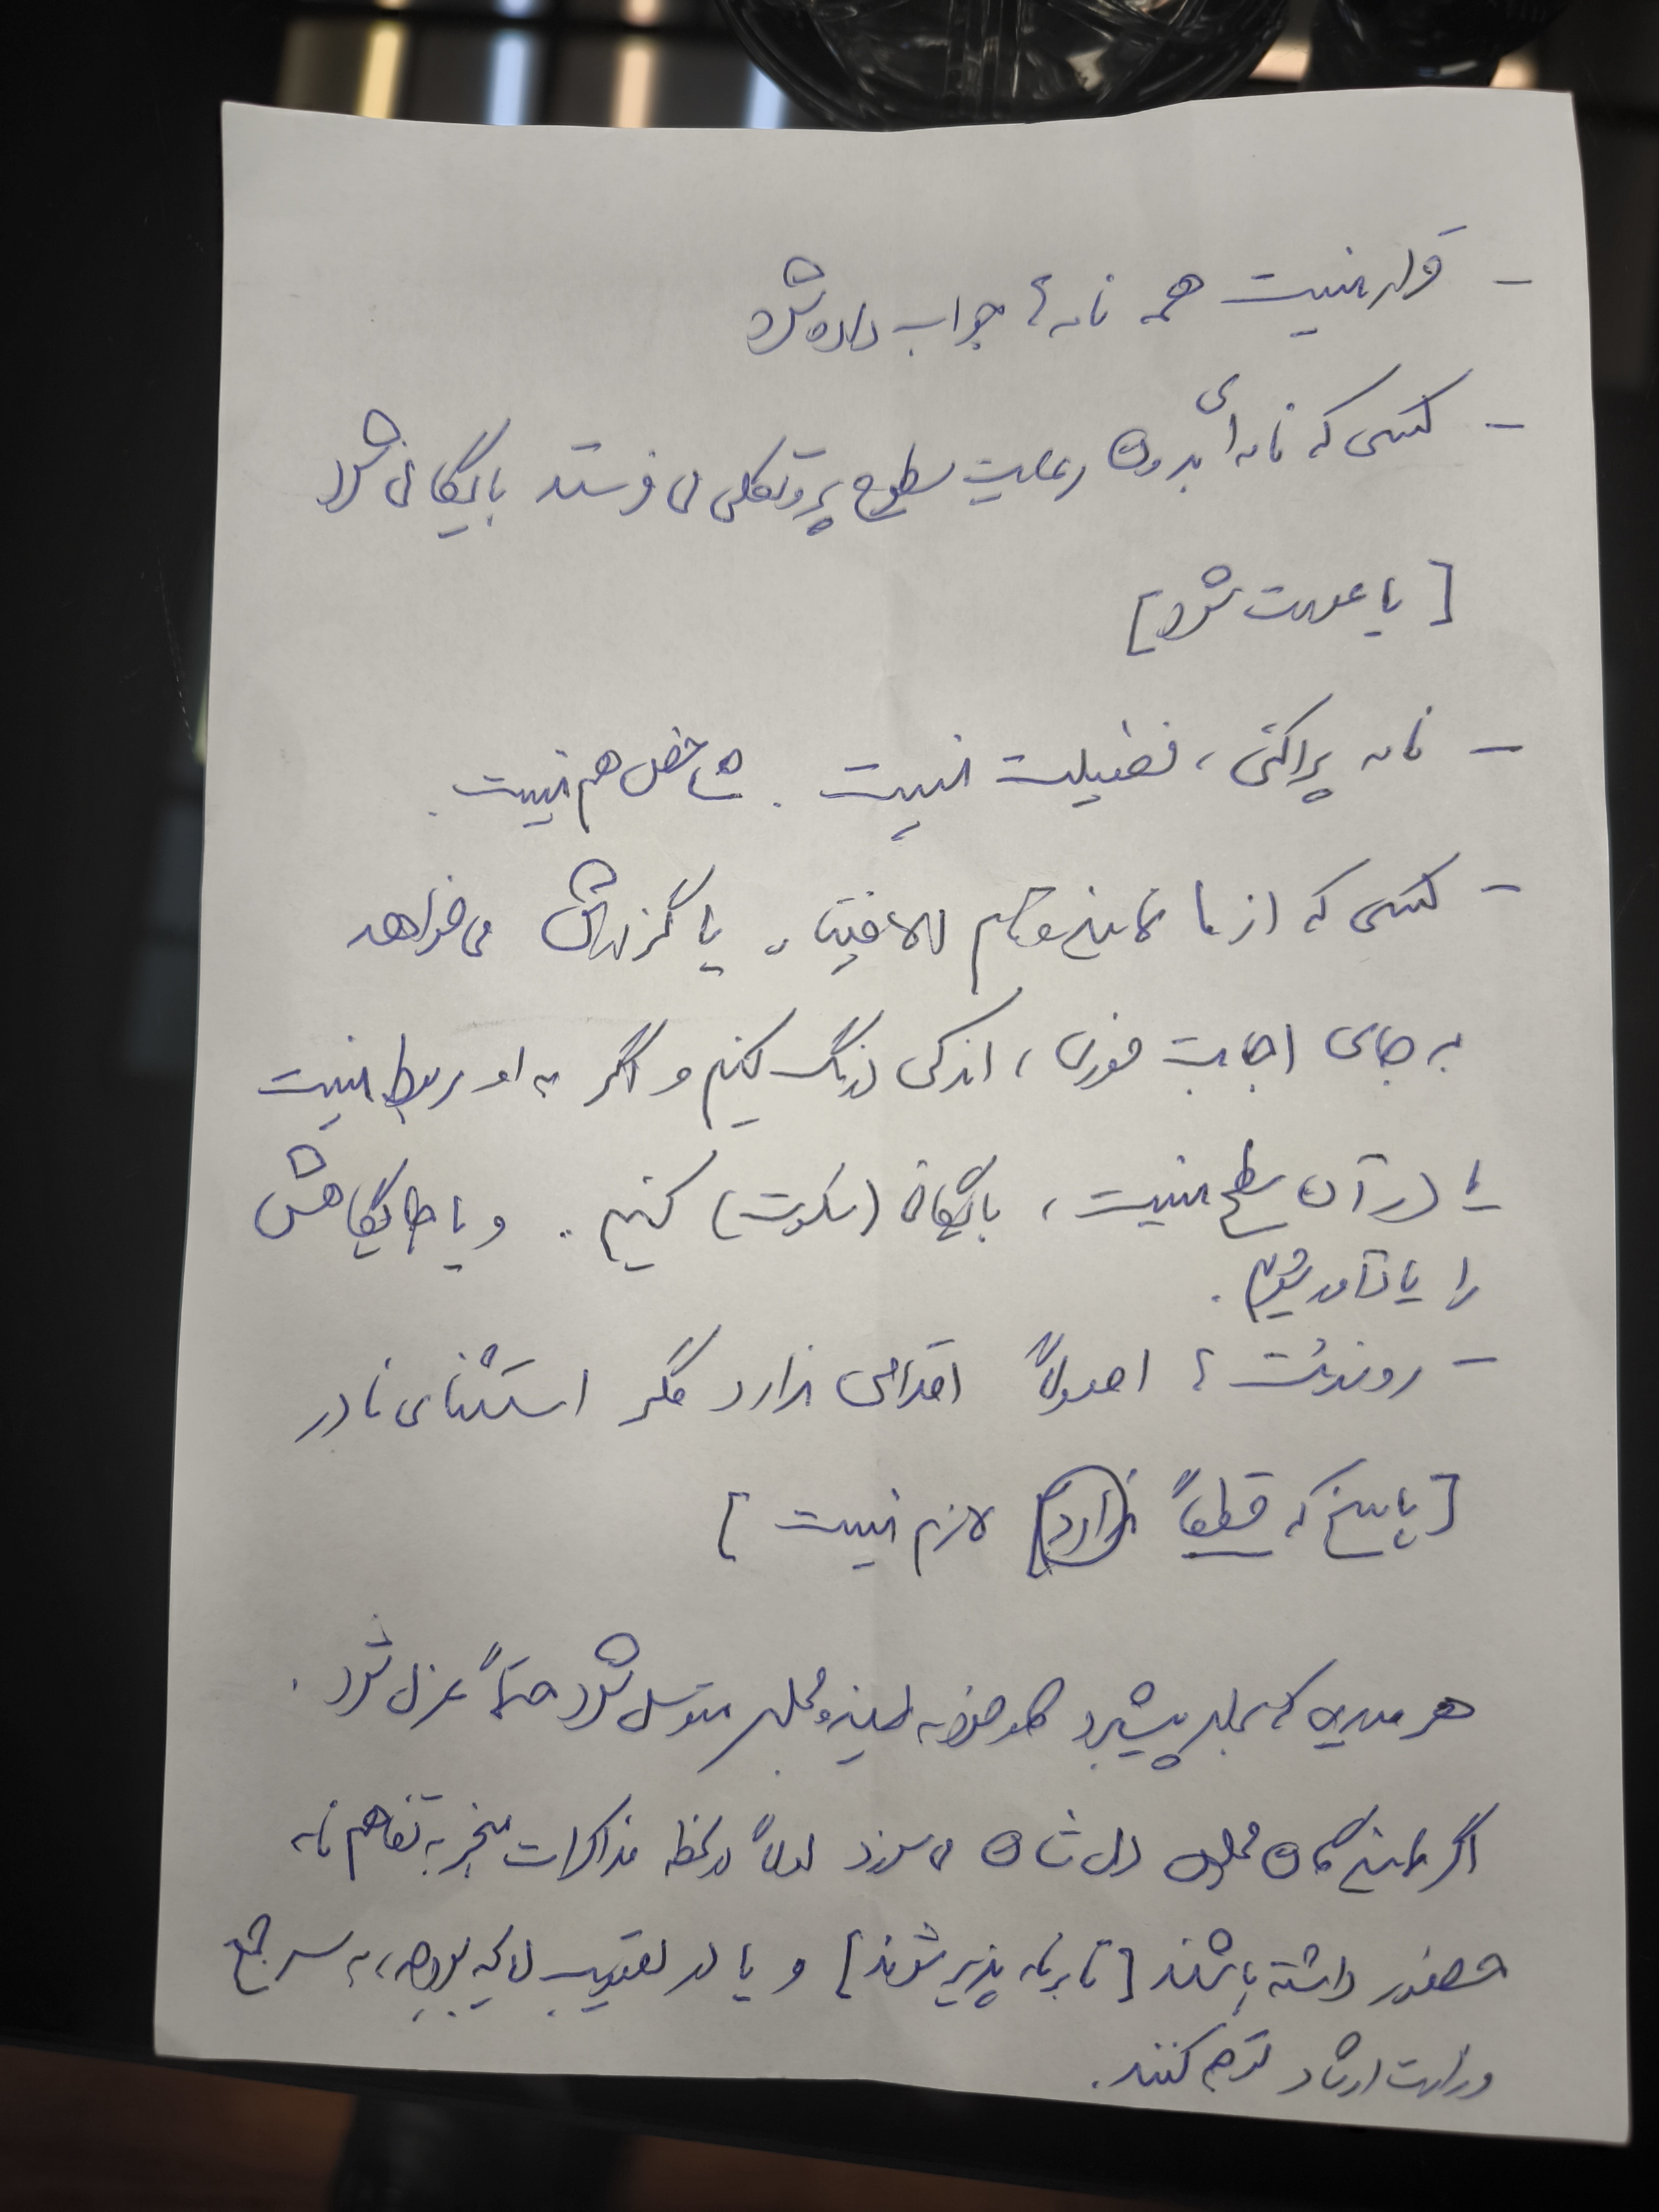 - قرار نیست همه نامه‌ها جواب داده شود
- کسی که نامه‌ای بدون رعایت سطوح پروتکلی می‌فرستد بایگانی شود
[یا عودت شود]
- نامه پراکنی، فضیلت نیست. شاخص هم نیست.
- کسی که از ما نماینده یا گزارش می‌خواهد
به جای اجابت فوری، اندکی درنگ کنیم و اگر به او مربوط نیست
یا در آن سطح نیست، بایگانی (سکوت) کنیم. و یا جایگاهش
را یادآور شویم.
- رونوشت‌ها اصولاً اقدامی ندارد مگر استثنای نادر
[پاسخ که قطعاً ندارد لازم نیست]
هر مدیری که برای پیشبرد کار خود به نماینده مجلس متوسل شود حتماً عزل شود.
اگر نمایندگان مجلس دلشان می‌سوزد اولاً در لحظه مذاکرات منجر به تفاهم نامه
حضور داشته باشند [تا برنامه پذیر شوند] و یا در تصویب لایحه بودجه، به سر جمع
وزارت ارشاد توجه کنند.